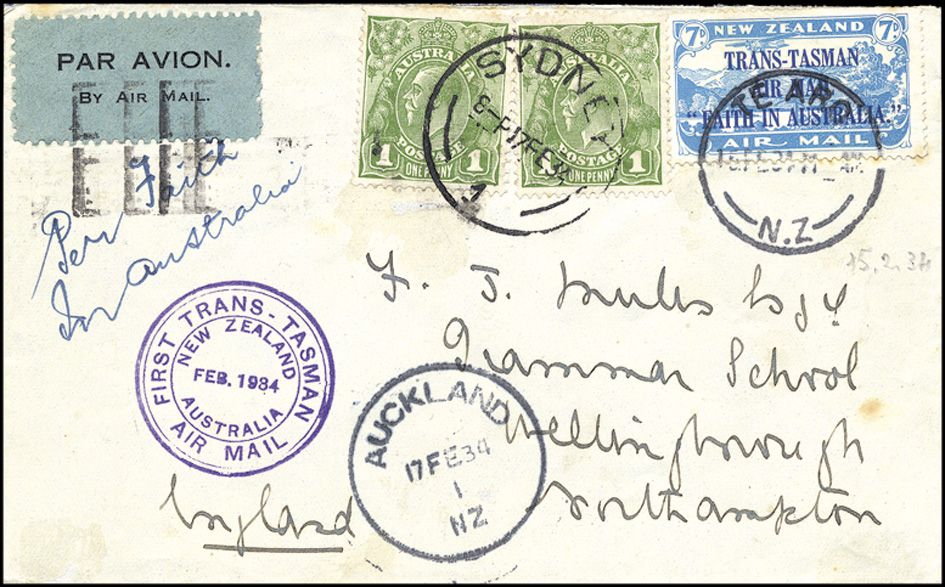 PAR AVION.
BY AIR MAIL.
Per Faith
In Australia
AUSTRALIA
POSTAGE
1 ONE PENNY 1
AUSTRALIA
POSTAGE
ONE PENNY 1
SYDNEY
8-P 17FE34
1
7D NEW ZEALAND 7D
TRANS-TASMAN
AIR MAIL
"FAITH IN AUSTRALIA."
AIR MAIL
TE ARO
N.Z
15.2.34
F. J.
Grammar School
Wellingborough
Northampton
England
FIRST TRANS-TASMAN
NEW ZEALAND
FEB. 1934
AUSTRALIA
AIR MAIL
AUCKLAND
17FE34
1
NZ